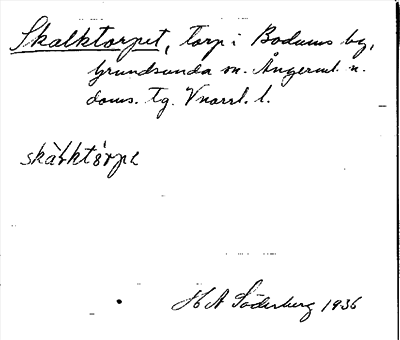 Skalktorpet, torp i Bodums by,
Grundsunda sn. Ångerml. n.
doms. tg. Vnorrl. l.
skàɫktò̤rpe
H A Söderberg 1936